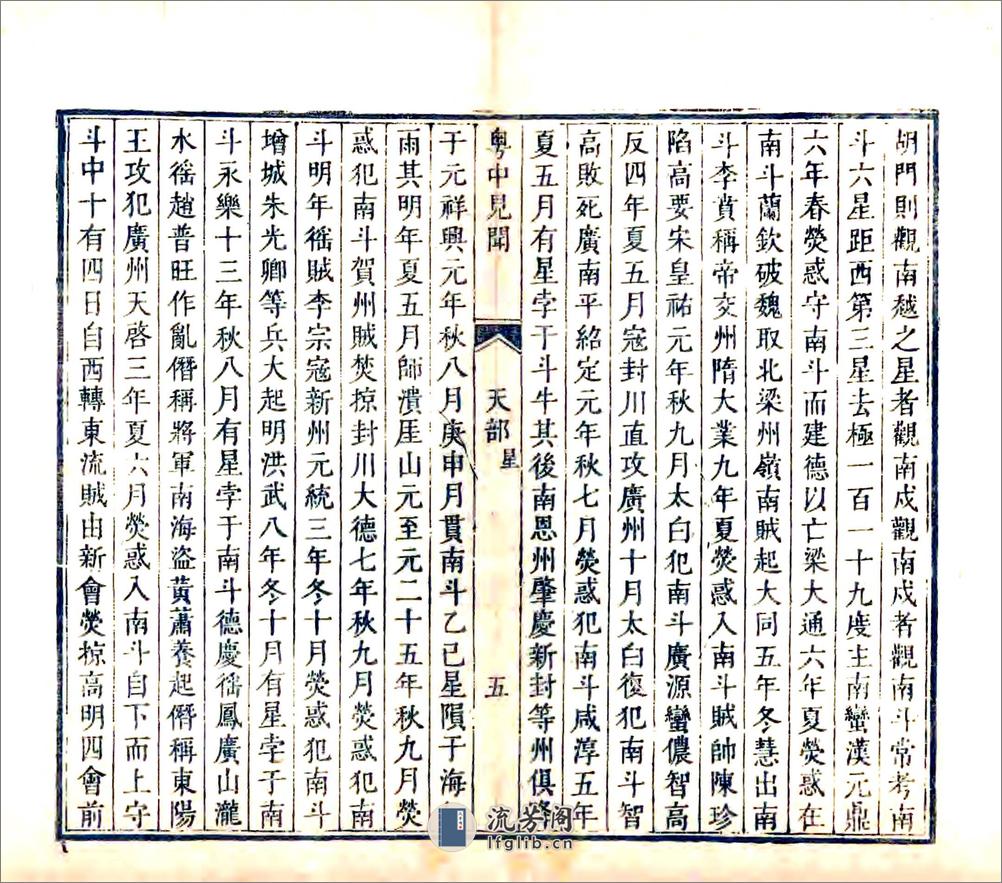 胡門則觀南越之星者觀南戍觀南戍者觀南斗常考南
斗六星距西第三星去極一百一十九度主南蠻漢元鼎
六年春熒惑守南斗而建德以亡梁大通六年夏熒惑在
南斗蘭欽破魏取北梁州嶺南賊起大同五年冬慧出南
斗李賁稱帝交州隋大業九年夏熒惑入南斗賊帥陳珍
陷高要宋皇祐元年秋九月太白犯南斗廣源蠻儂智高
反四年夏五月寇封川直攻廣州十月太白復犯南斗智
高敗死廣南平紹定元年秋七月熒惑犯南斗咸淳五年
夏五月有星孛于斗牛其後南恩州肇慶新封等州俱降
粵中見聞 天部 星 五
于元祥興元年秋八月庚申月貫南斗乙已星隕于海
雨其明年夏五月師潰厓山元至元二十五年秋九月熒
惑犯南斗賀州賊焚掠封川大德七年秋九月熒惑犯南
斗明年徭賊李宗寇新州元統三年冬十月熒惑犯南斗
增城朱光卿等兵大起明洪武八年冬十月有星孛于南
斗永樂十三年秋八月有星孛于南斗德慶徭鳳廣山瀧
水徭趙普旺作亂僭稱將軍南海盜黃蕭養起僭稱東陽
王攻犯廣州天啓三年夏六月熒惑入南斗自下而上守
斗中十有四日自西轉東流賊由新會熒掠高明四會前
流芳阁
lfglib.cn